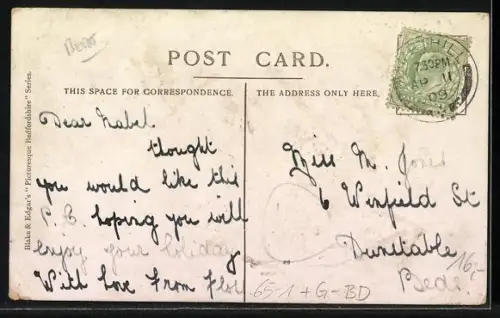 Beds
POST CARD.
THIS SPACE FOR CORRESPONDENCE.
THE ADDRESS ONLY HERE.
Blake & Edgar's "Picturesque Bedfordshire" Series.
Dear Mabel
thought
you would like this
P.C. hoping you will
enjoy your holiday
With love from Flor
Miss M. Jones
6 Winfield St
Dunstable
Beds.
7.30PM
11
09
16,-
65-1 + G-BD